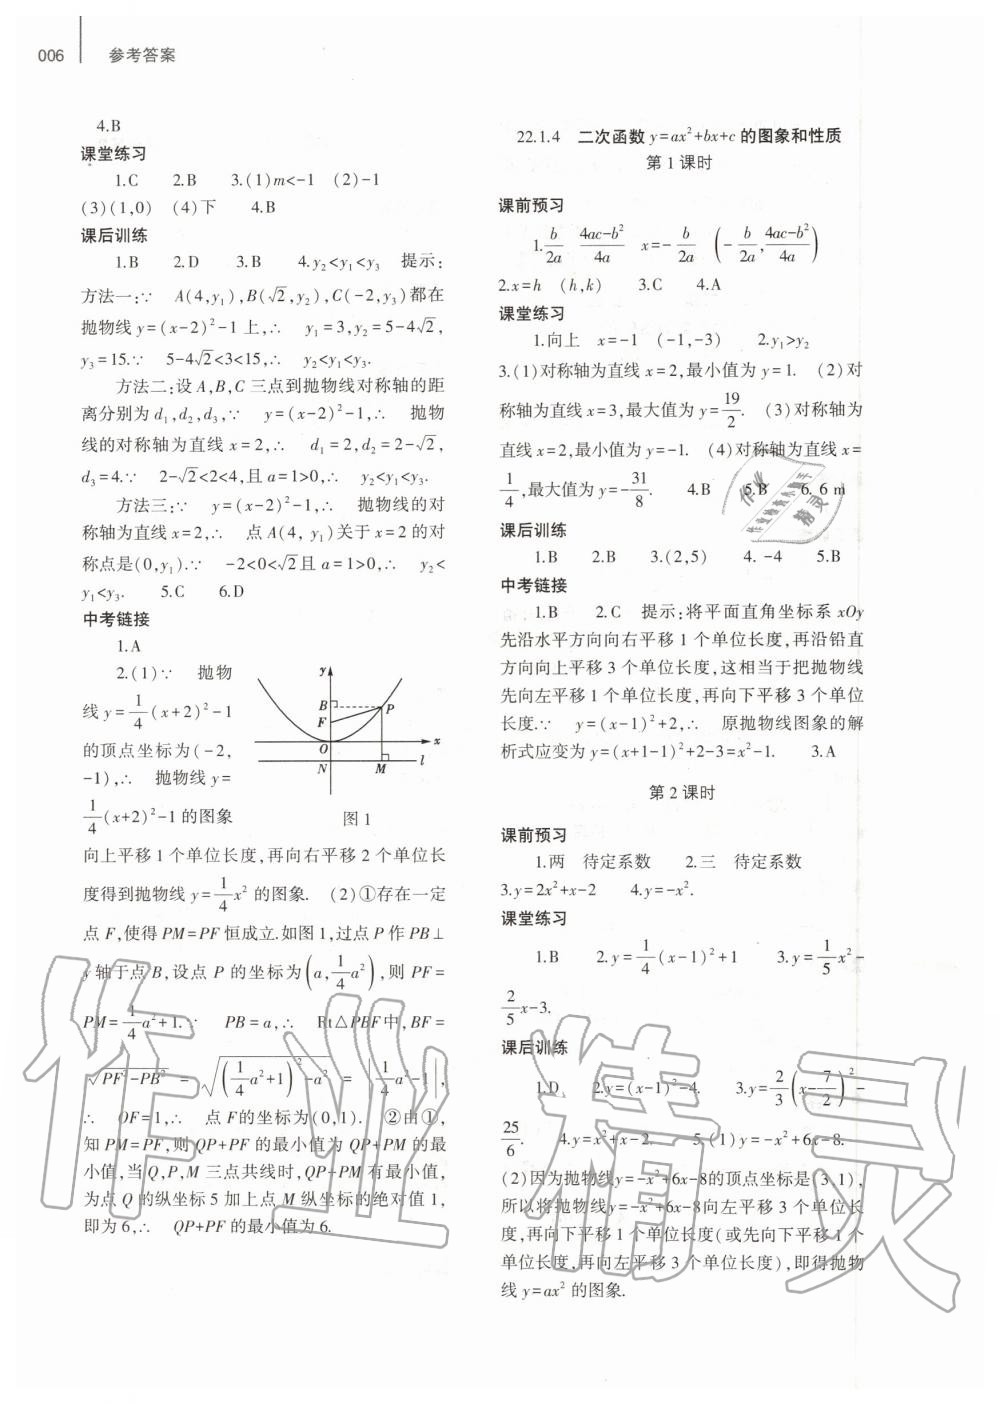 006 参考答案
4.B
课堂练习
1.C 2.B 3.(1)m<-1 (2)-1
(3)(1,0) (4)下 4.B
课后训练
1.B 2.D 3.B 4.y₂<y₁<y₃ 提示:
方法一:∵ A(4,y₁),B(√2,y₂),C(-2,y₃)都在
抛物线 y=(x-2)²-1 上,∴ y₁=3,y₂=5-4√2,
y₃=15.∵ 5-4√2<3<15,∴ y₂<y₁<y₃.
方法二:设 A,B,C 三点到抛物线对称轴的距
离分别为 d₁,d₂,d₃,∵ y=(x-2)²-1,∴ 抛物
线的对称轴为直线 x=2,∴ d₁=2,d₂=2-√2,
d₃=4.∵ 2-√2<2<4,且 a=1>0,∴ y₂<y₁<y₃.
方法三:∵ y=(x-2)²-1,∴ 抛物线的对
称轴为直线 x=2,∴ 点 A(4, y₁)关于 x=2 的对
称点是(0,y₁).∵ -2<0<√2且 a=1>0,∴ y₂<
y₁<y₃. 5.C 6.D
中考链接
1.A
2.(1)∵ 抛物
线 y=1/4(x+2)²-1
的顶点坐标为(-2,
-1),∴ 抛物线 y=
1/4(x+2)²-1 的图象
y
B P
F
O x
N M l
图 1
向上平移 1 个单位长度,再向右平移 2 个单位长
度得到抛物线 y=1/4x² 的图象. (2)①存在一定
点 F,使得 PM=PF 恒成立.如图 1,过点 P 作 PB⊥
y 轴于点 B,设点 P 的坐标为(a,1/4a²),则 PF=
PM=1/4a²+1.∵ PB=a,∴ Rt△PBF中,BF=
√(PF²-PB²) = √((1/4a²+1)²-a²) = |1/4a²-1|,
∴ OF=1,∴ 点 F的坐标为(0,1). ②由①,
知 PM=PF,则 QP+PF 的最小值为 QP+PM 的最
小值,当 Q,P,M 三点共线时,QP+PM 有最小值,
为点 Q 的纵坐标 5 加上点 M 纵坐标的绝对值 1,
即为 6,∴ QP+PF 的最小值为 6.
22.1.4 二次函数 y=ax²+bx+c 的图象和性质
第 1 课时
课前预习
1.b/2a (4ac-b²)/4a x=-b/2a (-b/2a,(4ac-b²)/4a)
2.x=h (h,k) 3.C 4.A
课堂练习
1.向上 x=-1 (-1,-3) 2.y₁>y₂
3.(1)对称轴为直线 x=2,最小值为 y=1. (2)对
称轴为直线 x=3,最大值为 y=19/2. (3)对称轴为
直线 x=2,最小值为 y=-1. (4)对称轴为直线 x=
1/4,最大值为 y=-31/8. 4.B 5.B 6. 6 m
课后训练
1.B 2.B 3.(2,5) 4. -4 5.B
中考链接
1.B 2.C 提示:将平面直角坐标系 xOy
先沿水平方向向右平移 1 个单位长度,再沿铅直
方向向上平移 3 个单位长度,这相当于把抛物线
先向左平移 1 个单位长度,再向下平移 3 个单位
长度.∵ y=(x-1)²+2,∴ 原抛物线图象的解
析式应变为 y=(x+1-1)²+2-3=x²-1. 3.A
第 2 课时
课前预习
1.两 待定系数 2.三 待定系数
3.y=2x²+x-2 4.y=-x².
课堂练习
1.B 2.y=1/4(x-1)²+1 3.y=1/5x²-
2/5x-3.
课后训练
1.D 2.y=(x-1)²-4. 3.y=2/3(x-7/2)²-
25/6. 4.y=x²+x-2. 5.(1)y=-x²+6x-8.
(2)因为抛物线y=-x²+6x-8的顶点坐标是(3,1),
所以将抛物线y=-x²+6x-8向左平移 3 个单位长
度,再向下平移 1 个单位长度(或先向下平移 1 个
单位长度,再向左平移 3 个单位长度),即得抛物
线 y=ax² 的图象.
作业精灵